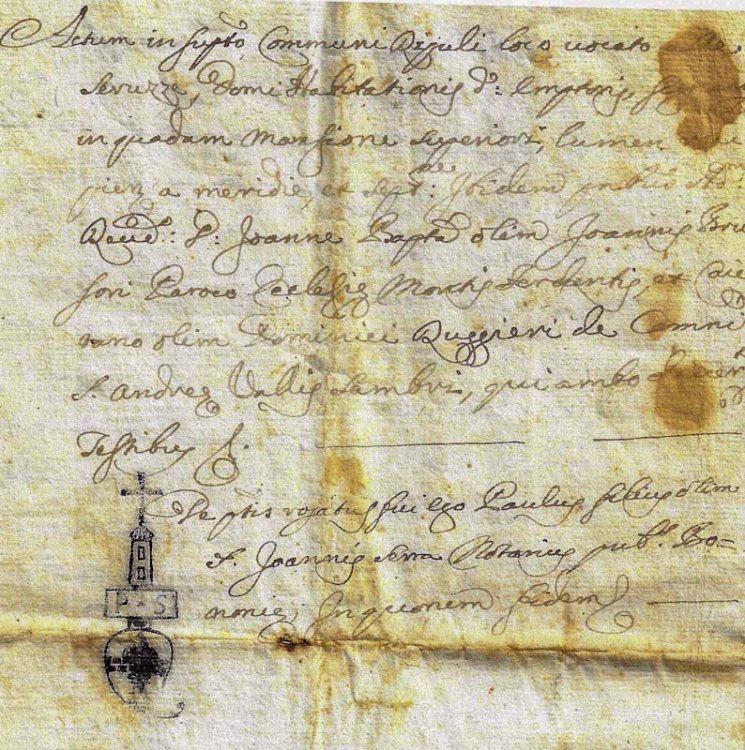 Actum in supto Communi Rejuli loco vocato
Seruzze, Domi Habitationis d: Emptoris,
in quadam mansione superiori, lumen
pienz a meridie, et Ibidem
Reud: D: Joanne Bapta olim Joannis Bru
sori Paroco Ecclesiæ Montis Ardentis, et
tano olim Dominici Ruggieri de Comni
S. Andreæ Vallis Lambri, qui ambo
Testibus
De ptis rogatus fui Ego Paulus filius olim
S. Joannis Serra Notarius pub: Bo=
noniæ, In quorum fidem
P S